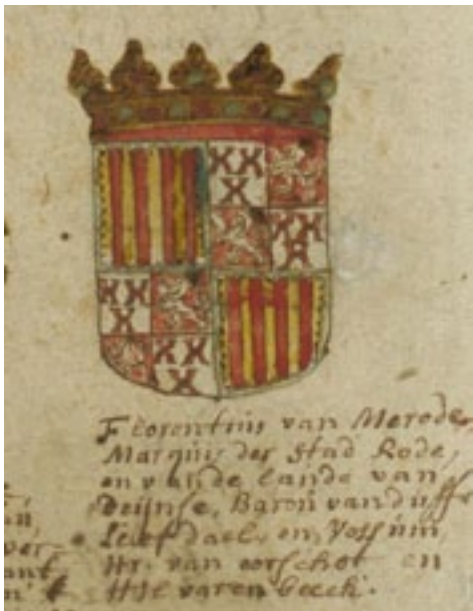 Florentius van Merode,
Marquis der Stad Rode,
en vande lande van
Deijnse, Baron van duff
Leefdael en Vossum,
Hr. van oorschot en
Hilvarenbeeck.